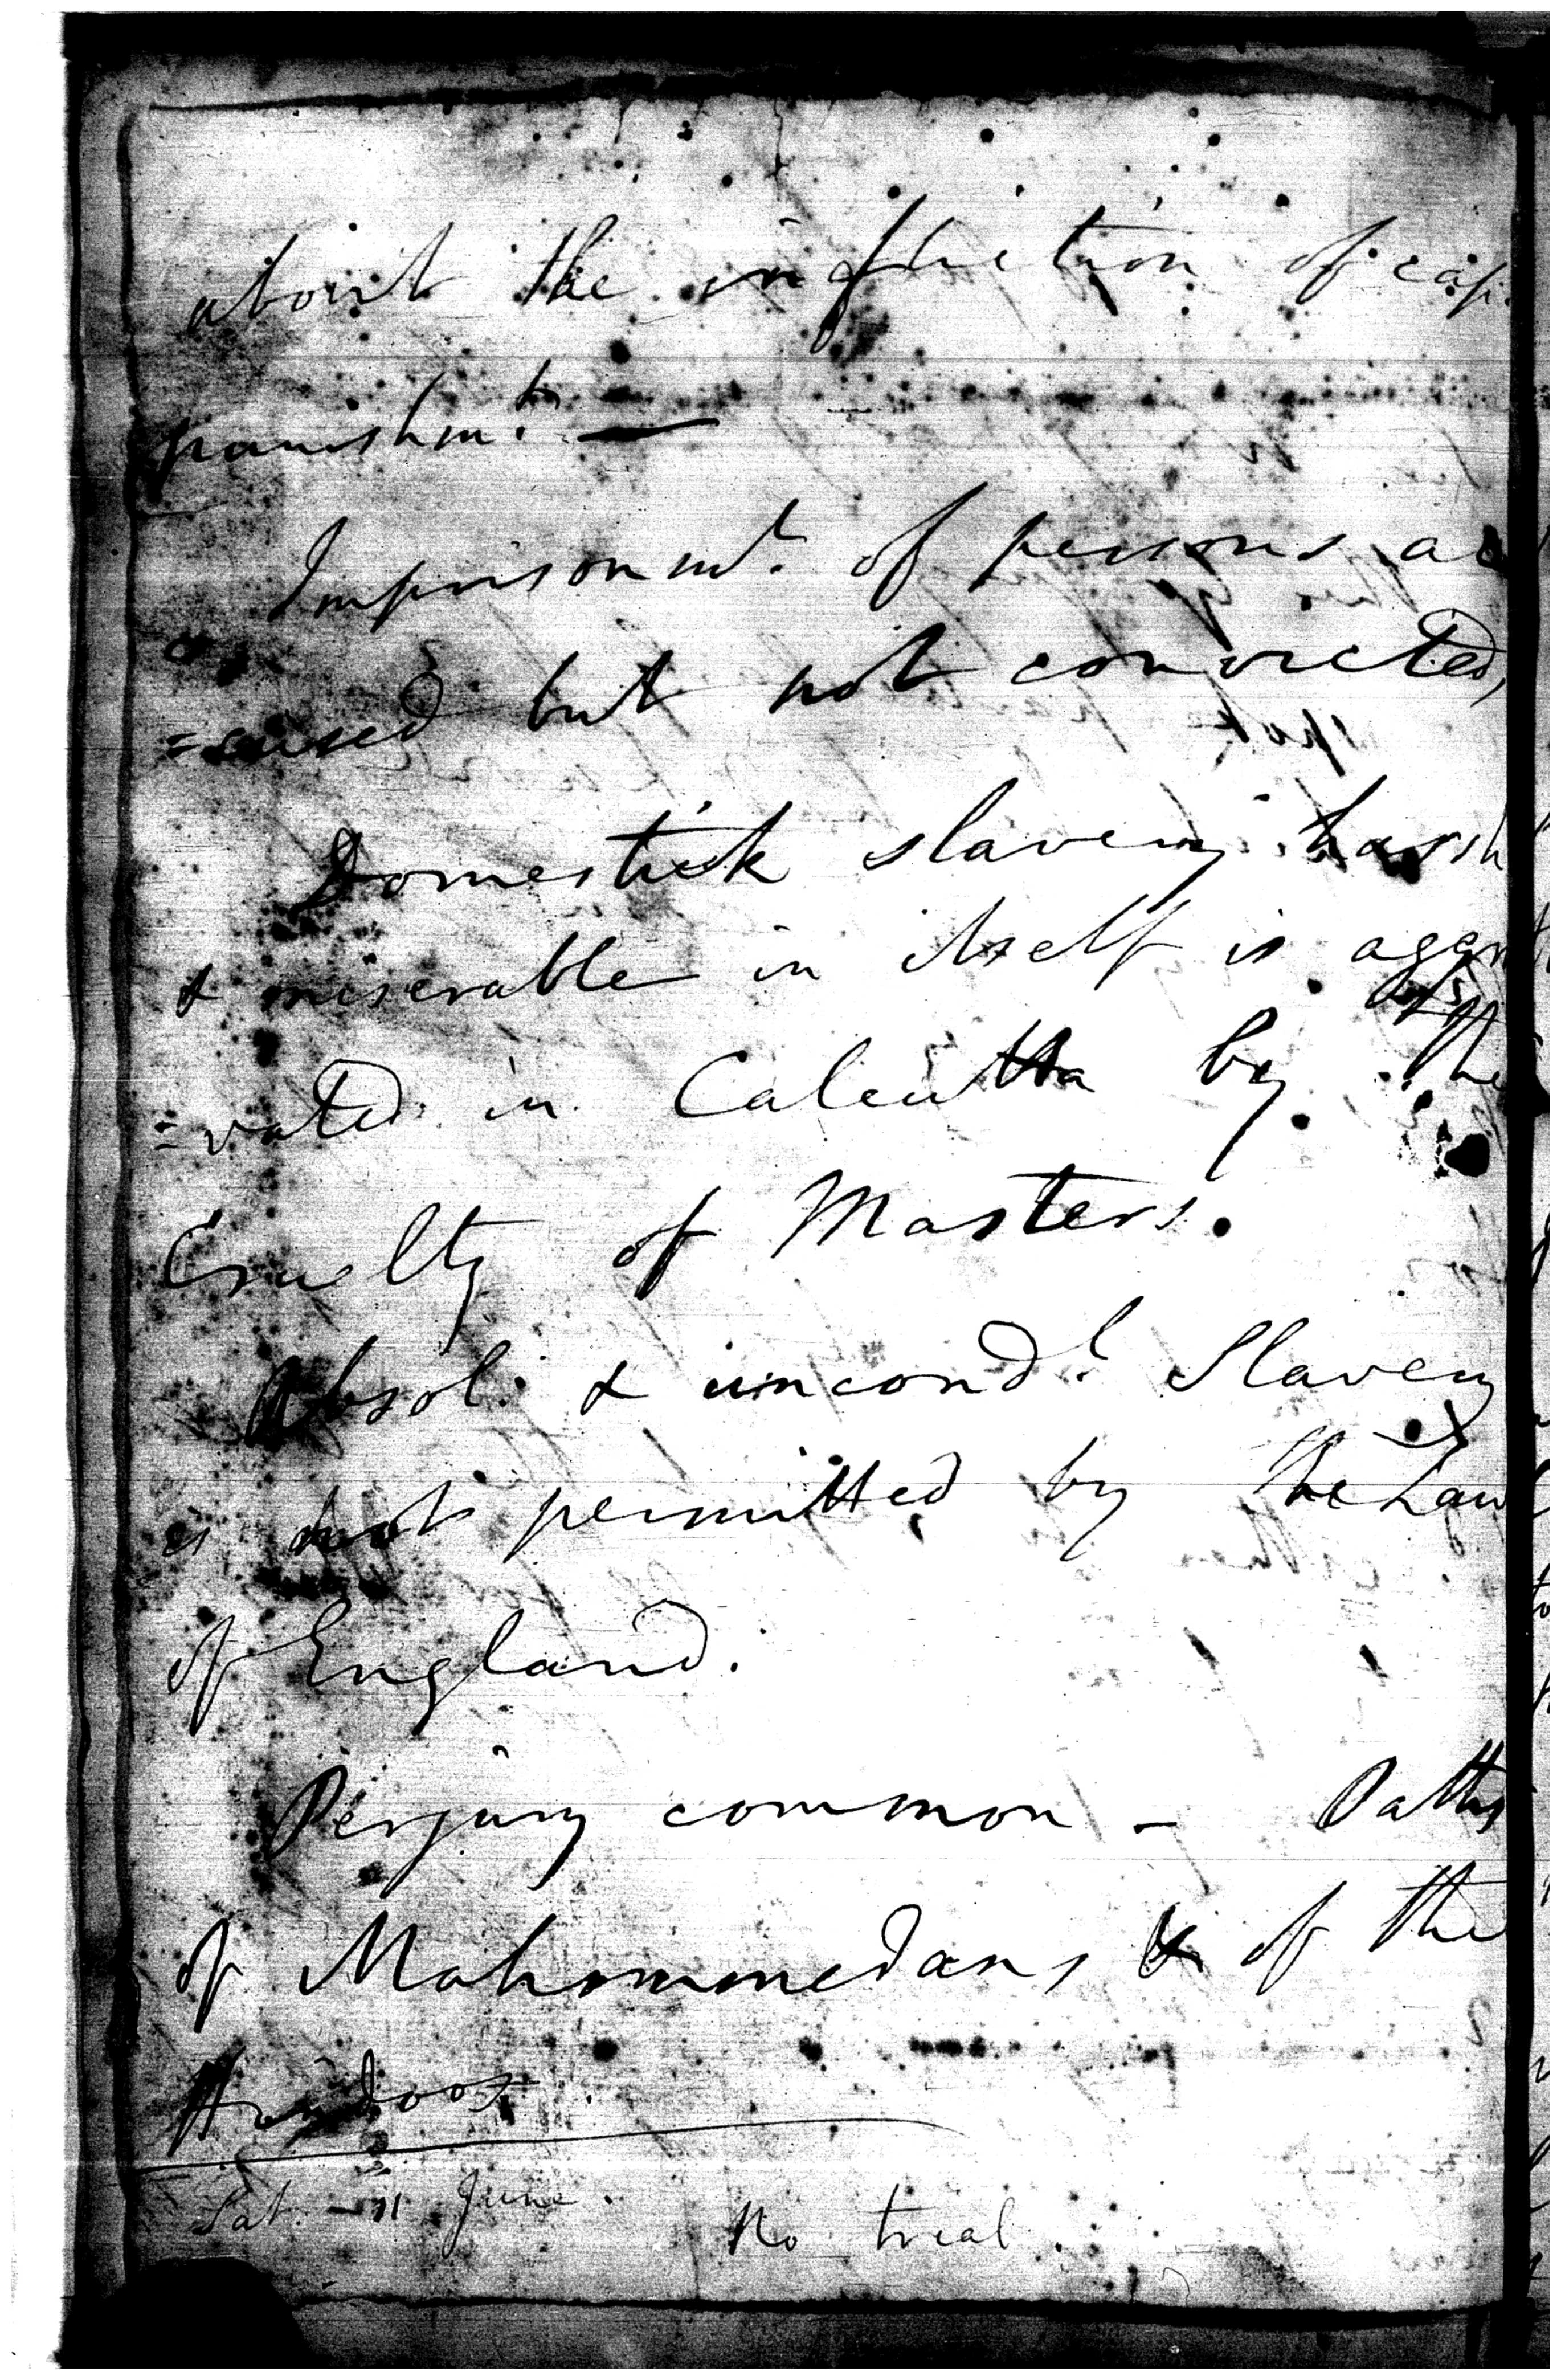 about the infliction of cap.
punishmts. —
Imprisonmt. of persons ac
=cused but not convicted,
Domestick slavery harsh
& miserable in itself is aggra
=vated in Calcutta by the
Cruelty of Masters.
Absol. & uncondl. Slavery
is not permitted by the Law
of England.
Perjury common - Oaths
of Mahommedans & of the
Hindoos.
Sat. - 11 June.
No trial.